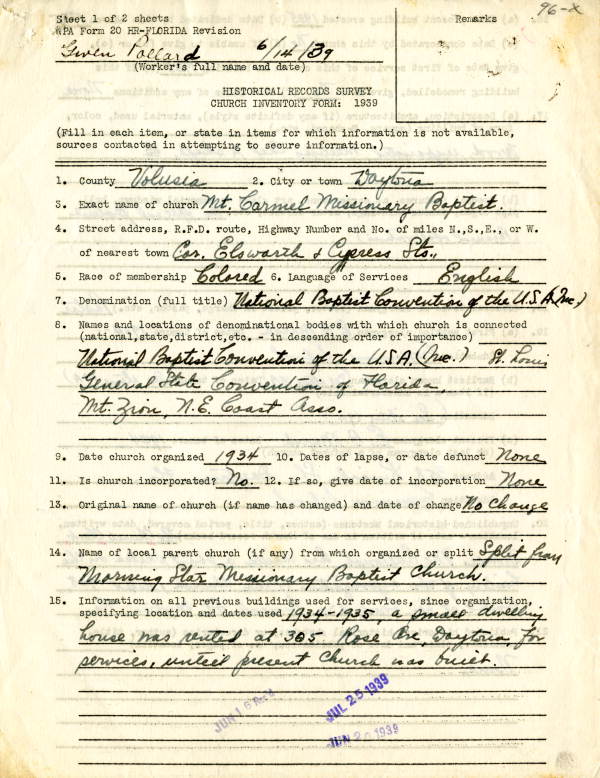 96-X
Steet 1 of 2 sheets
WPA Form 20 HR-FLORIDA Revision
Remarks
Gwen Pollard 6/14/39
(Worker's full name and date)
HISTORICAL RECORDS SURVEY
CHURCH INVENTORY FORM: 1939
(Fill in each item, or state in items for which information is not available,
sources contacted in attempting to secure information.)
1. County Volusia 2. City or town Daytona
3. Exact name of church Mt. Carmel Missionary Baptist.
4. Street address, R.F.D. route, Highway Number and No. of miles N.,S.,E., or W.
of nearest town Cor. Elsworth & Cypress Sts.,
5. Race of membership Colored 6. Language of Services English
7. Denomination (full title) National Baptist Convention of the U.S.A. Inc.)
8. Names and locations of denominational bodies with which church is connected
(national,state,district,etc. - in descending order of importance)
National Baptist Convention of the U.S.A. (Inc.) St. Louis
General State Convention of Florida,
Mt. Zion, N.E. Coast Asso.
9. Date church organized 1934 10. Dates of lapse, or date defunct None
11. Is church incorporated? No. 12. If so, give date of incorporation None
13. Original name of church (if name has changed) and date of change No Change
14. Name of local parent church (if any) from which organized or split Split from
Morning Star Missionary Baptist Church.
15. Information on all previous buildings used for services, since organization,
specifying location and dates used 1934-1935, a small dwelling
house was rented at 305 Rose Ave, Daytona for
services, until present Church was built.
JUL 25 1939